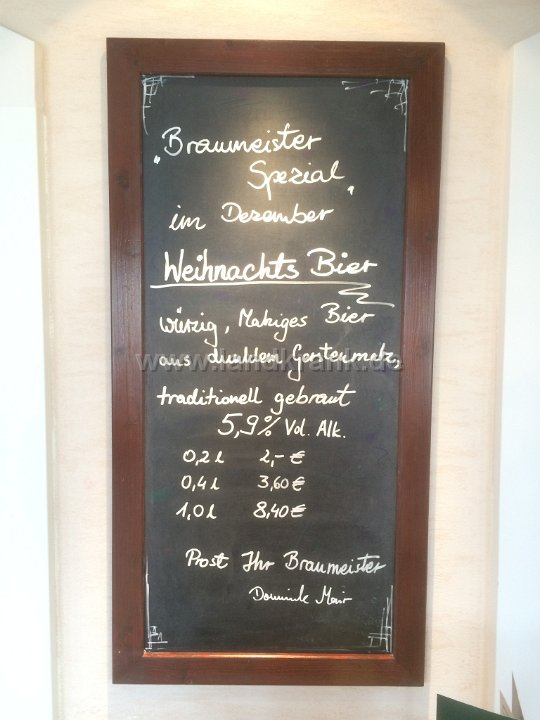 „Braumeister
Spezial"
im Dezember
Weihnachts Bier
würzig, Malziges Bier
aus dunklem Gerstenmalz,
www.landkrank.de
traditionell gebraut
5,9% Vol. Alk.
0,2 l 2,- €
0,4 l 3,60 €
1,0 l 8,40 €
Prost Ihr Braumeister
Dominik Mair